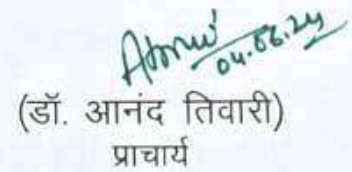 04.06.24
(डॉ. आनंद तिवारी)
प्राचार्य